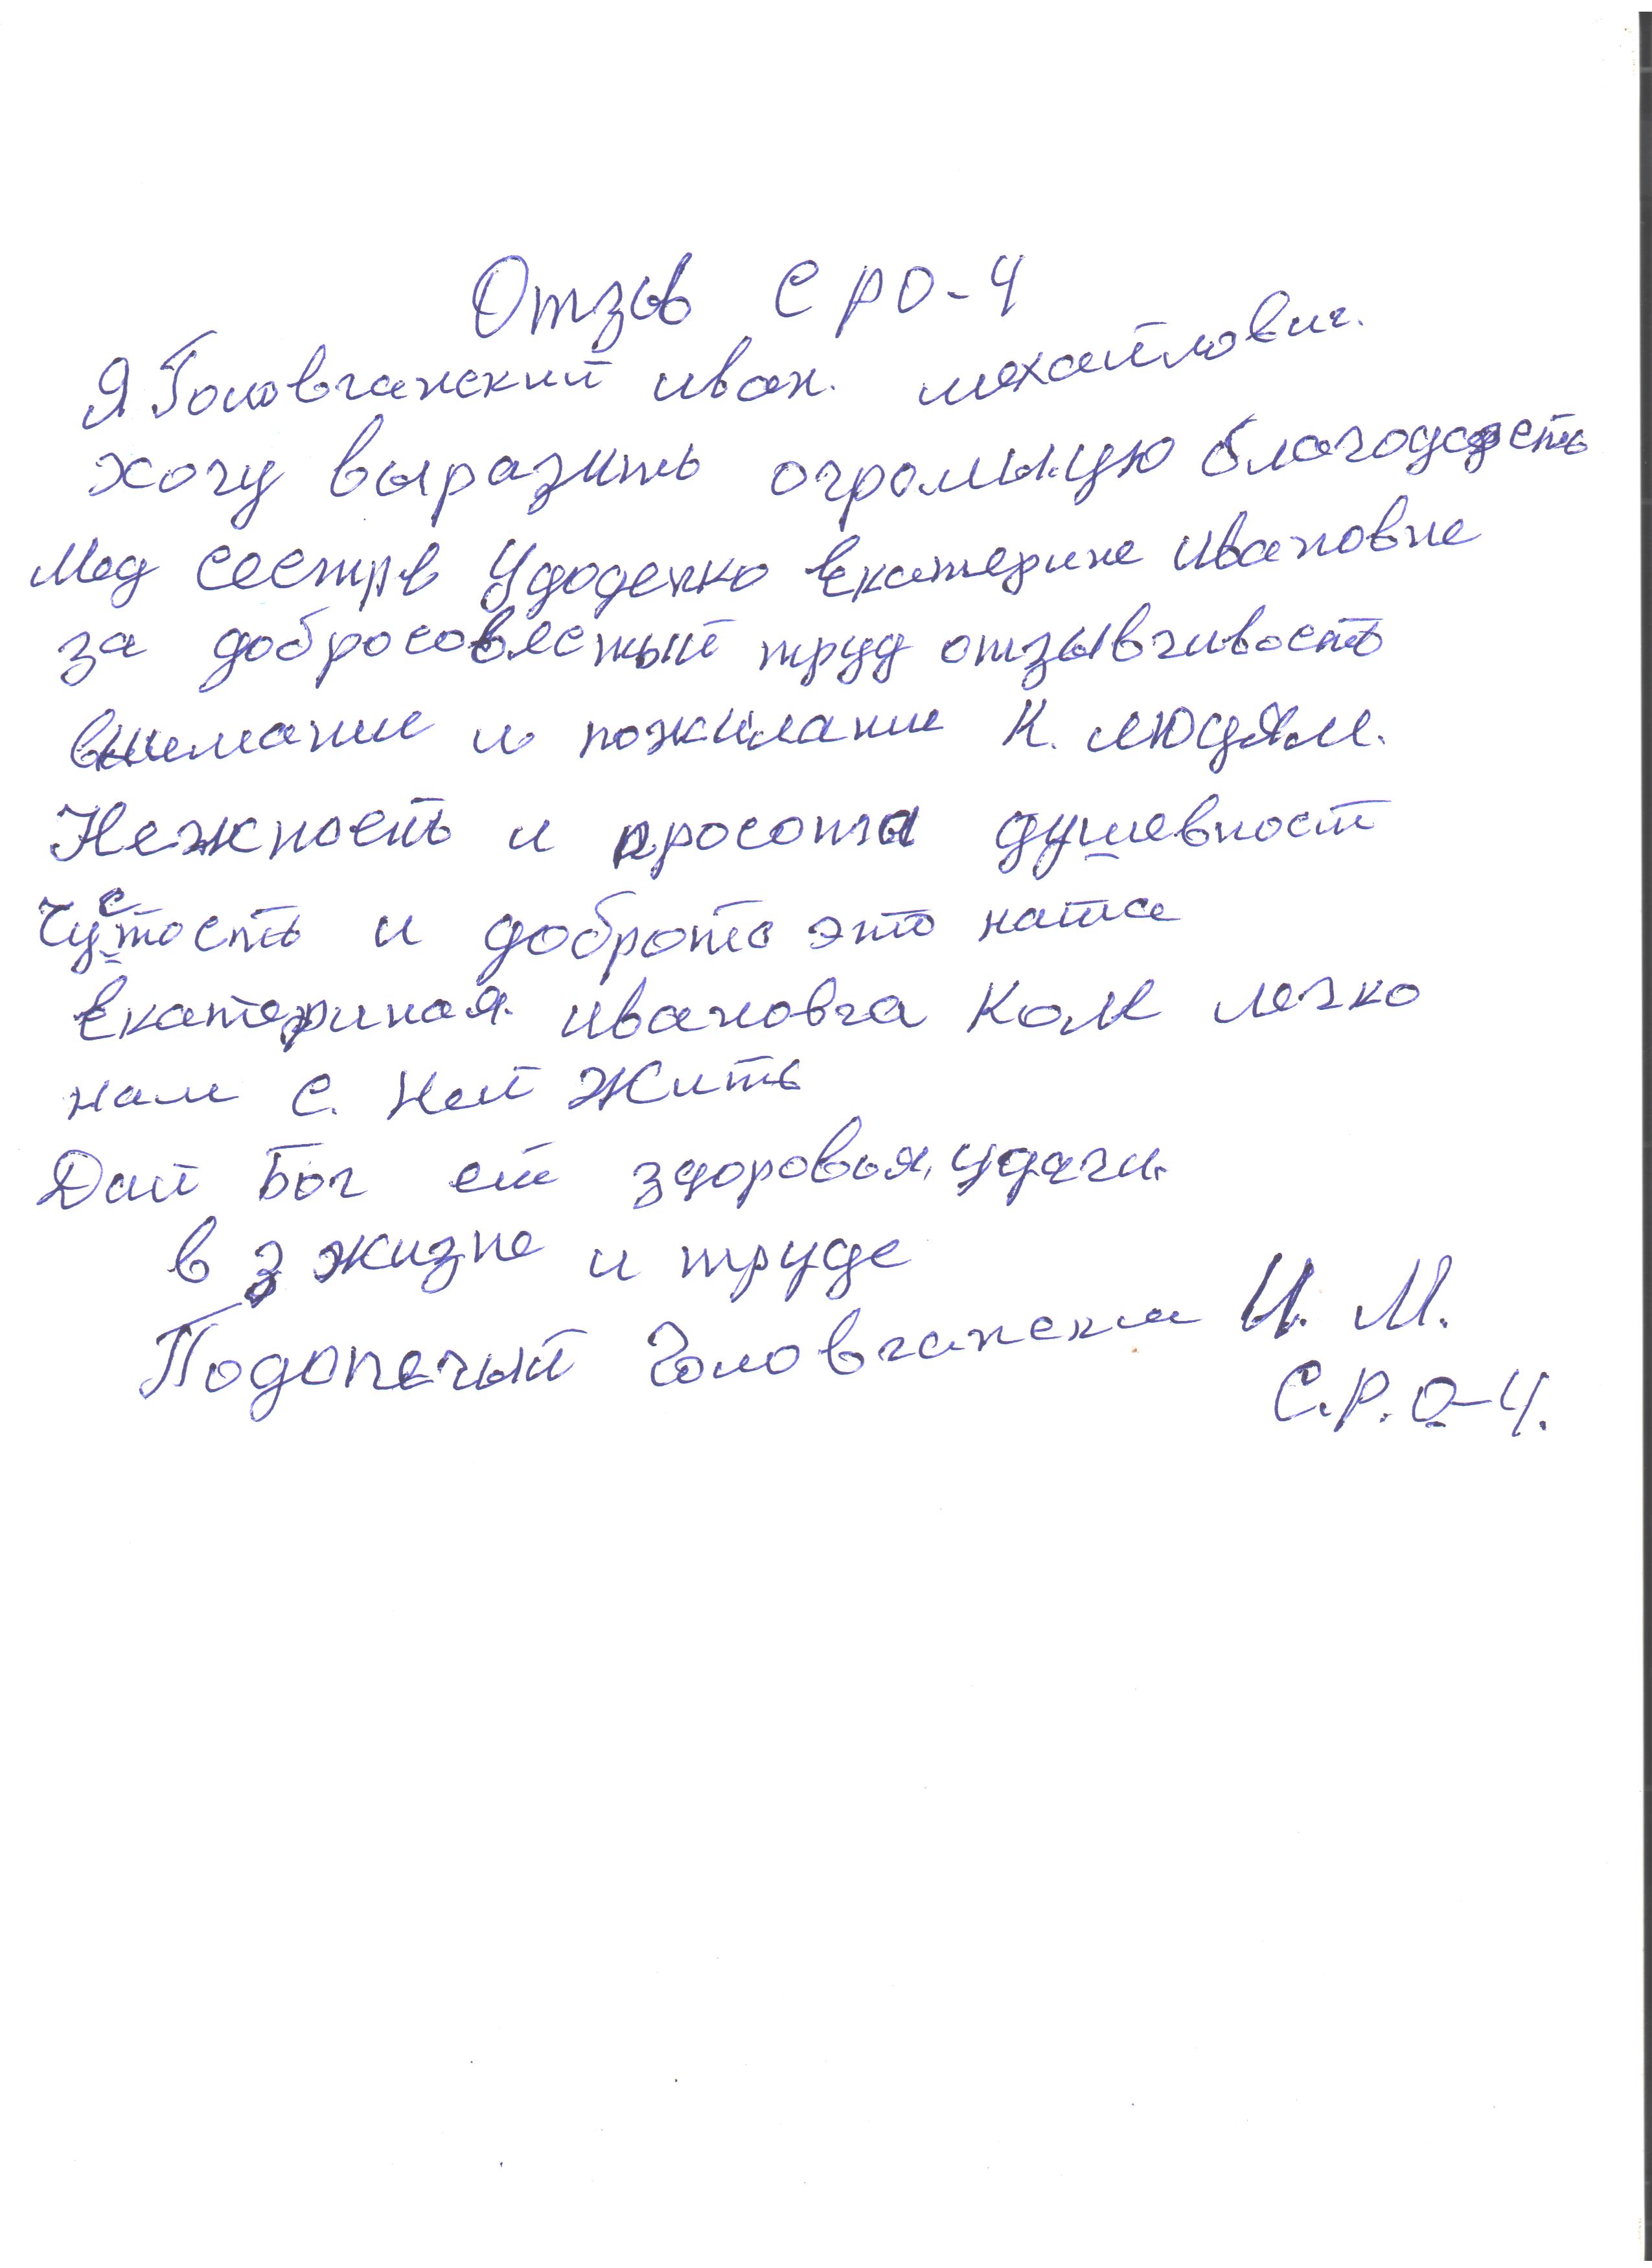 Отзыв СРО-4
Я Головчанский иван. михайлович.
хочу выразить огромную благодарсть
Мед сестрв Удоденко Екатерине Ивановне
за добросовестный труд отзывчивость
внимание и пожилание К. людям.
Нежность и просота душевност
Чустость и доброта это наша
Екатериная. ивановна Как легко
нам с. ней Жить
Дай Бог ей здоровья, удачи.
в з жизне и труде
Подопечный Головчански И. М.
С.Р.О-4.